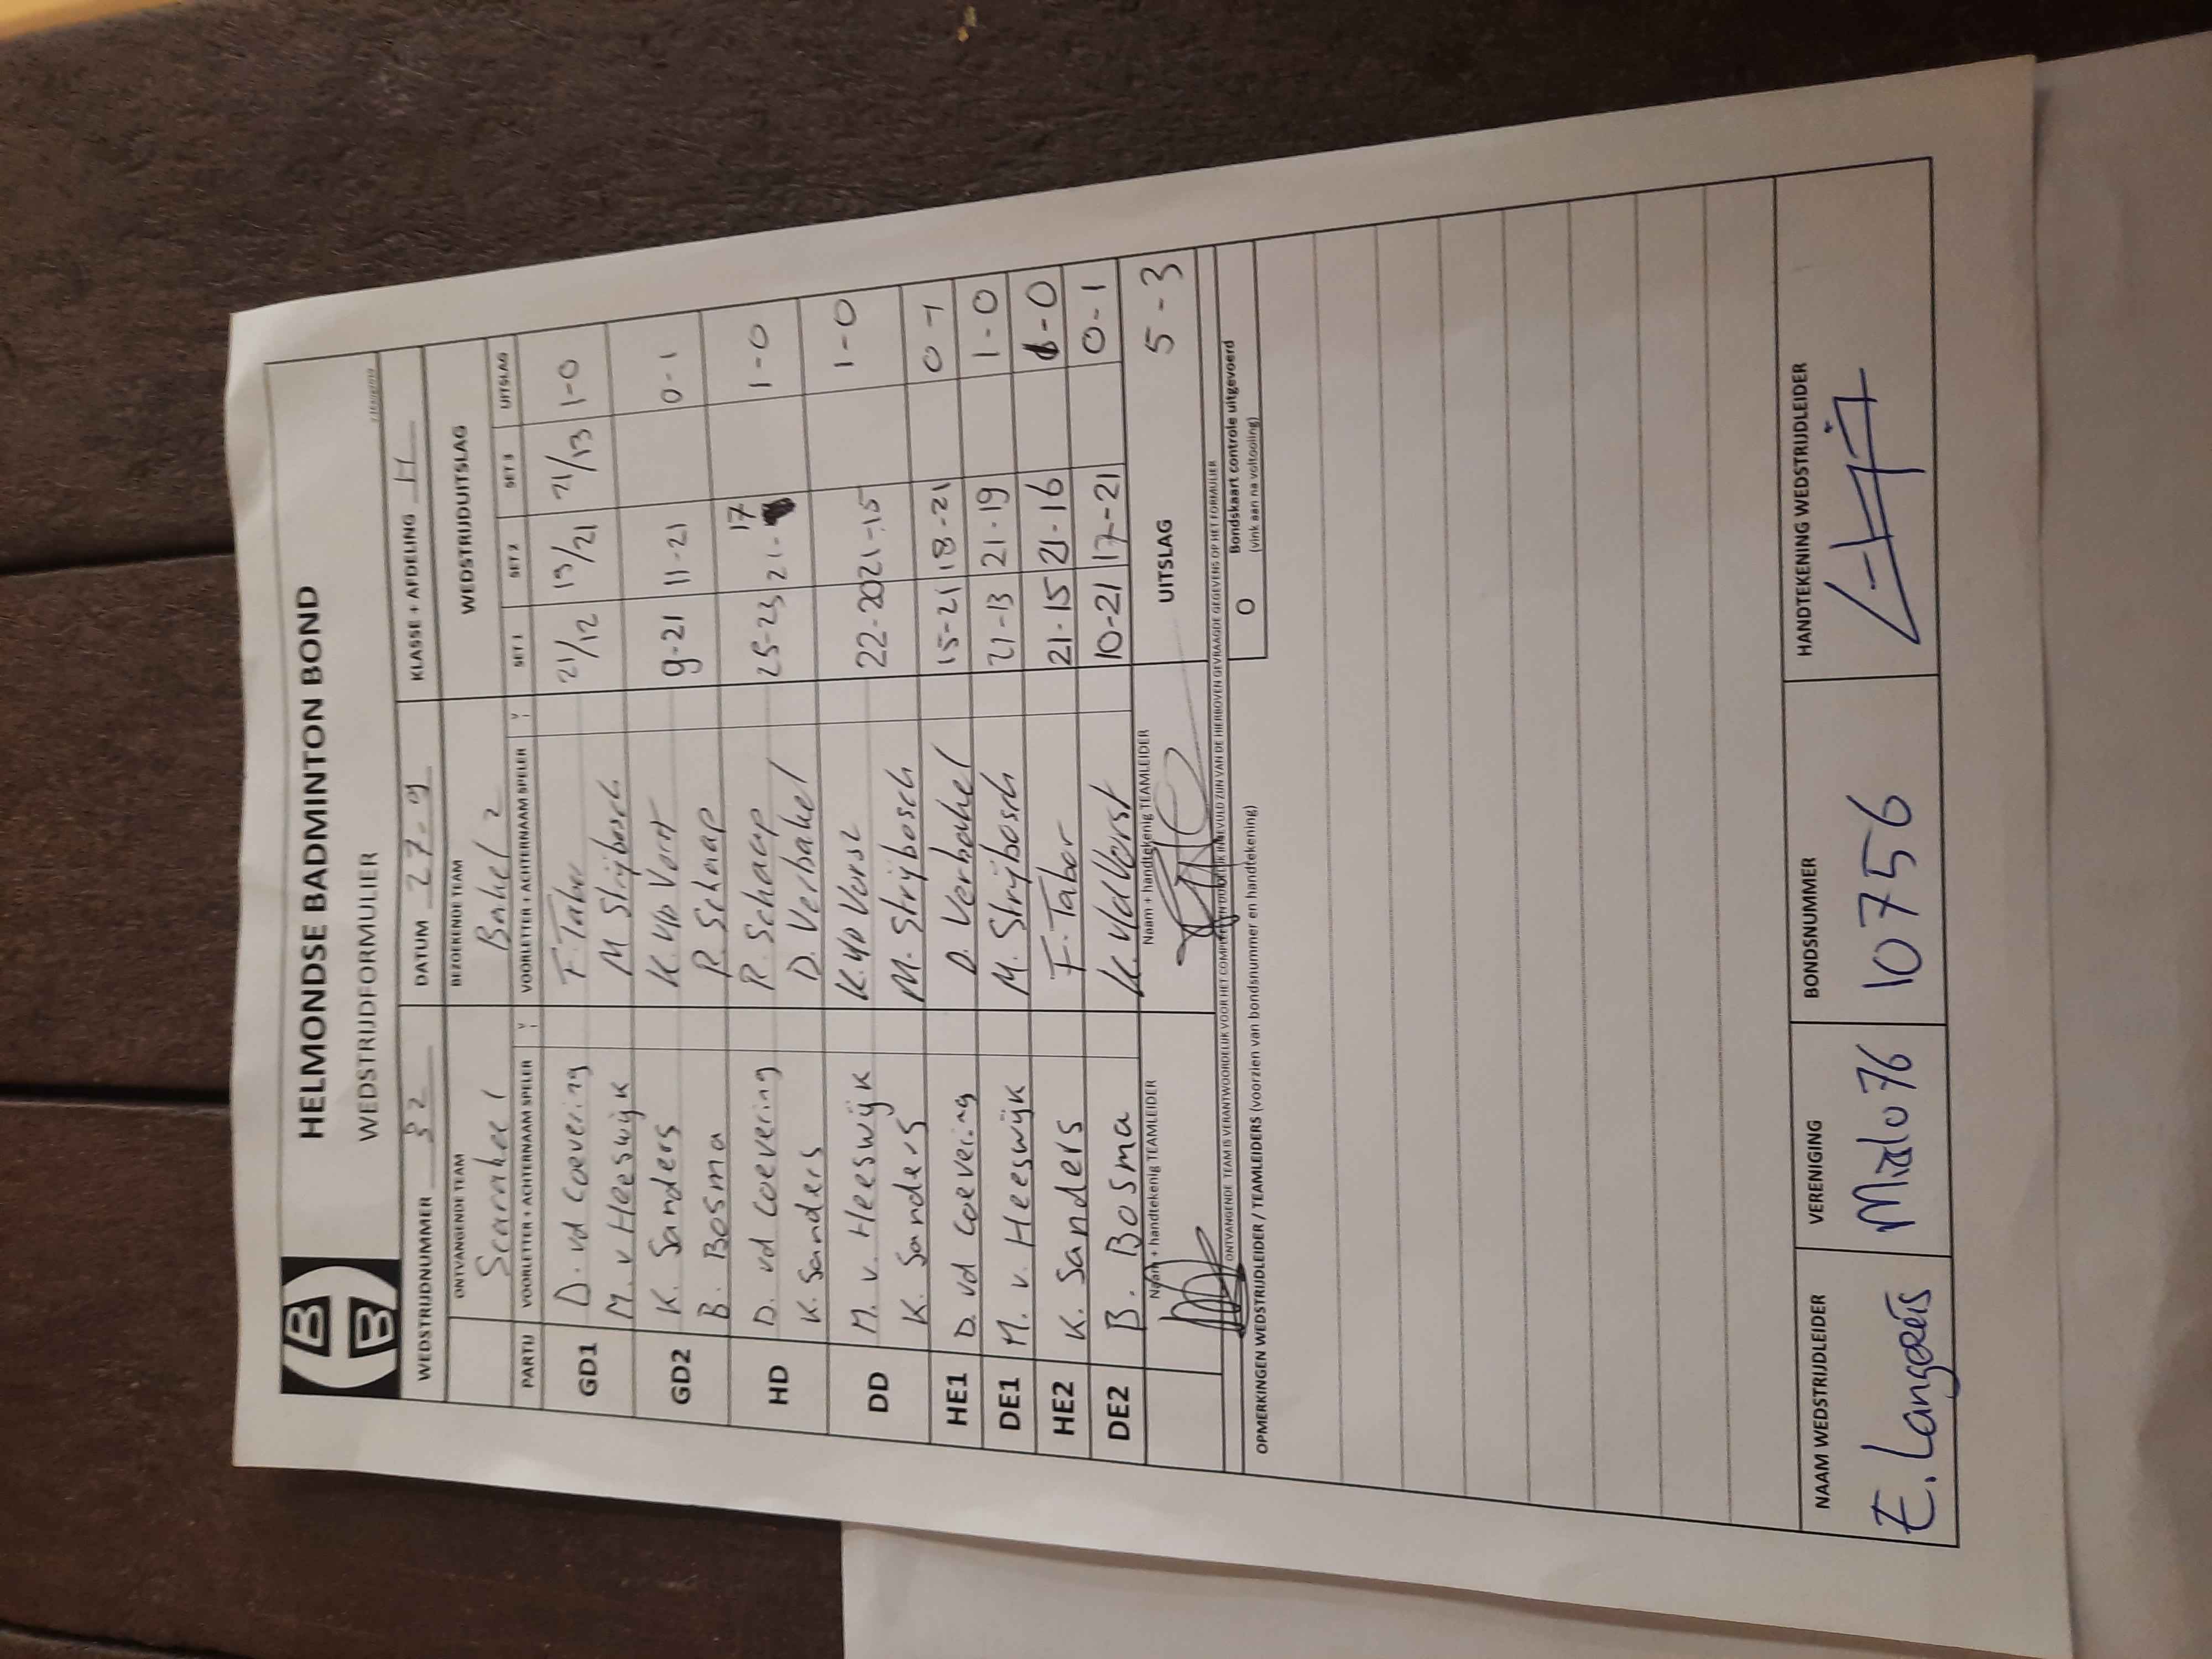 HELMONDSE BADMINTON BOND
WEDSTRIJDFORMULIER
WEDSTRIJDNUMMER 32 DATUM 27-9 KLASSE + AFDELING H
ONTVANGENDE TEAM BEZOEKENDE TEAM WEDSTRIJDUITSLAG
Bakel 2
PARTIJ VOORLETTER + ACHTERNAAM SPELER V VOORLETTER + ACHTERNAAM SPELER V SET 1 SET 2 SET 3 UITSLAG
GD1 D. vd Coevering F. Tabor 21/12 19/21 21/13 1-0
M. v Heeswijk M Strijbosch
GD2 K. Sanders K. v/d Vorst 9-21 11-21 0-1
B. Bosma R. Schaap
HD D. vd Coevering R. Schaap 25-23 21-17 1-0
K. Sanders D. Verbakel
DD M. v. Heeswijk K. v/d Vorst 22-20 21-15 1-0
K. Sanders M. Strijbosch
HE1 D. vd Coevering D. Verbakel 15-21 18-21 0-1
DE1 M. v. Heeswijk M. Strijbosch 21-13 21-19 1-0
HE2 K. Sanders F. Tabor 21-15 21-16 1-0
DE2 B. Bosma K. v/d Vorst 10-21 17-21 0-1
Naam + handtekenig TEAMLEIDER Naam + handtekenig TEAMLEIDER UITSLAG 5-3
ONTVANGENDE TEAM IS VERANTWOORDELIJK VOOR HET COMPLEET EN DUIDELIJK INGEVULD ZIJN VAN DE HIERBOVEN GEVRAAGDE GEGEVENS OP HET FORMULIER
O Bondskaart controle uitgevoerd
(vink aan na voltooiing)
OPMERKINGEN WEDSTRIJDLEIDER / TEAMLEIDERS (voorzien van bondsnummer en handtekening)
NAAM WEDSTRIJDLEIDER VERENIGING BONDSNUMMER HANDTEKENING WEDSTRIJDLEIDER
E. Mixlo 76 10756